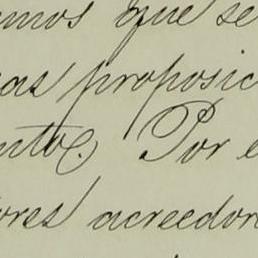 emos que se
as proposic
nto. Por e
ores acreedor